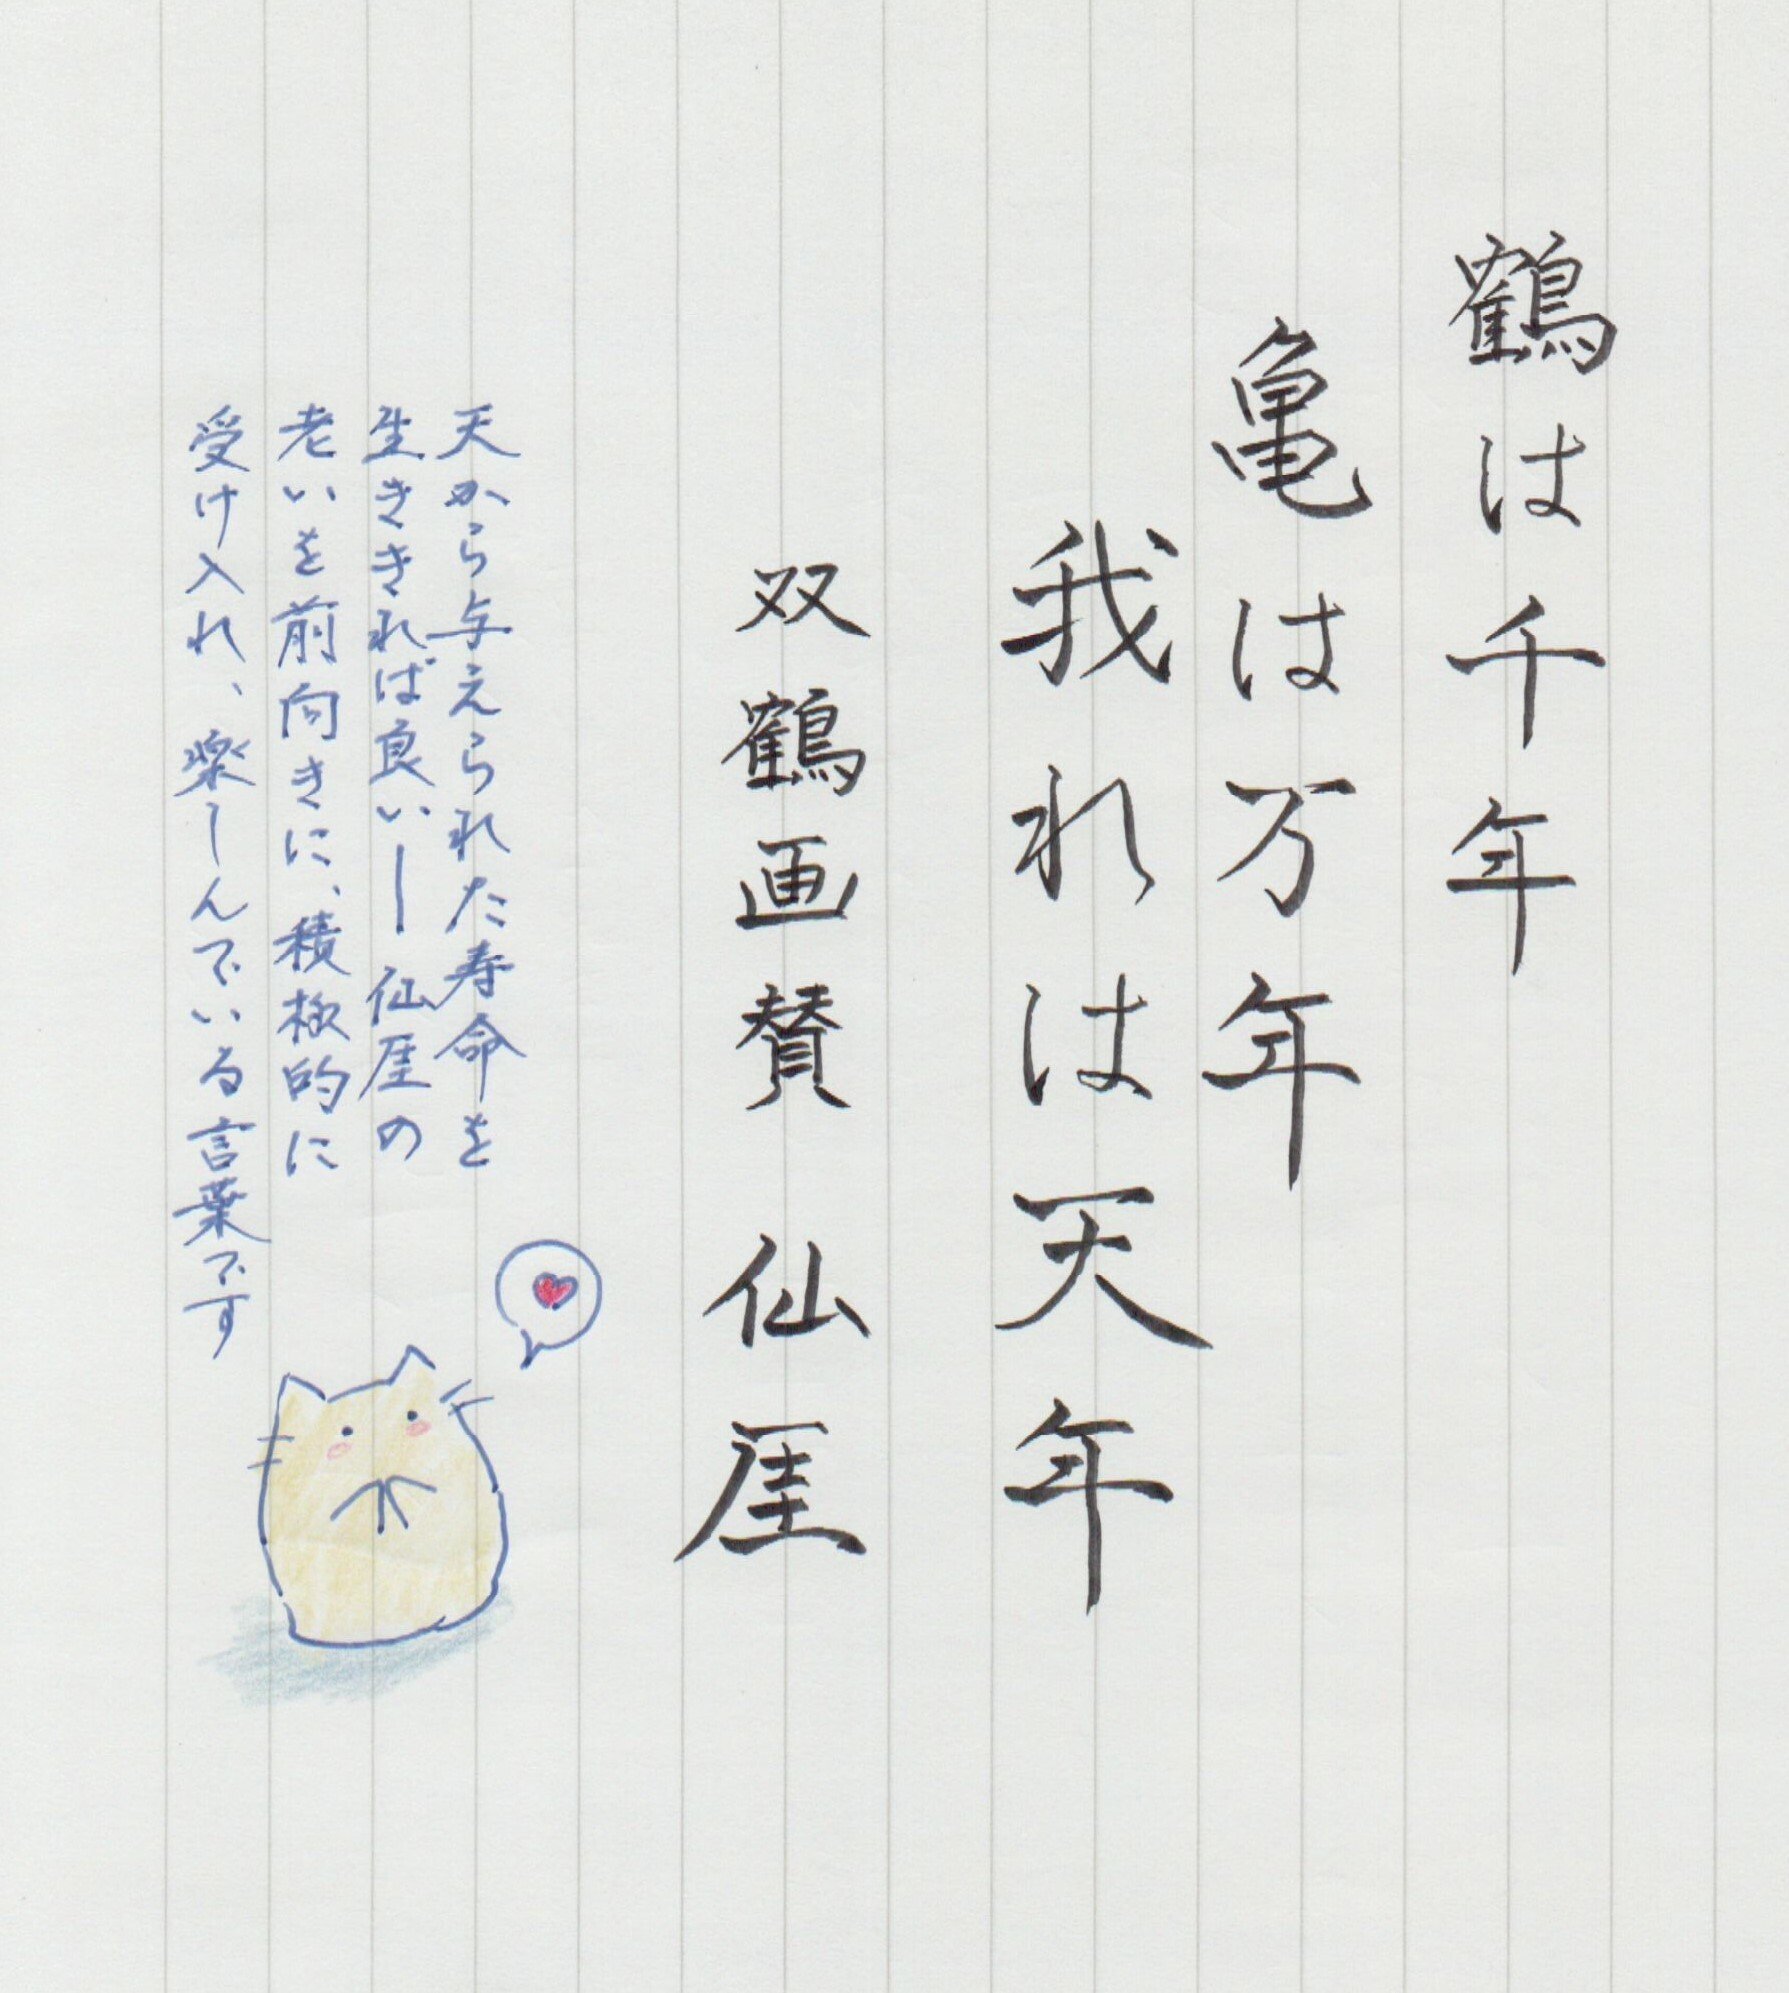 鶴は千年
亀は万年
我れは天年
双鶴画賛 仙厓
天から与えられた寿命を
生ききれば良い―仙厓の
老いを前向きに、積極的に
受け入れ、楽しんでいる言葉です